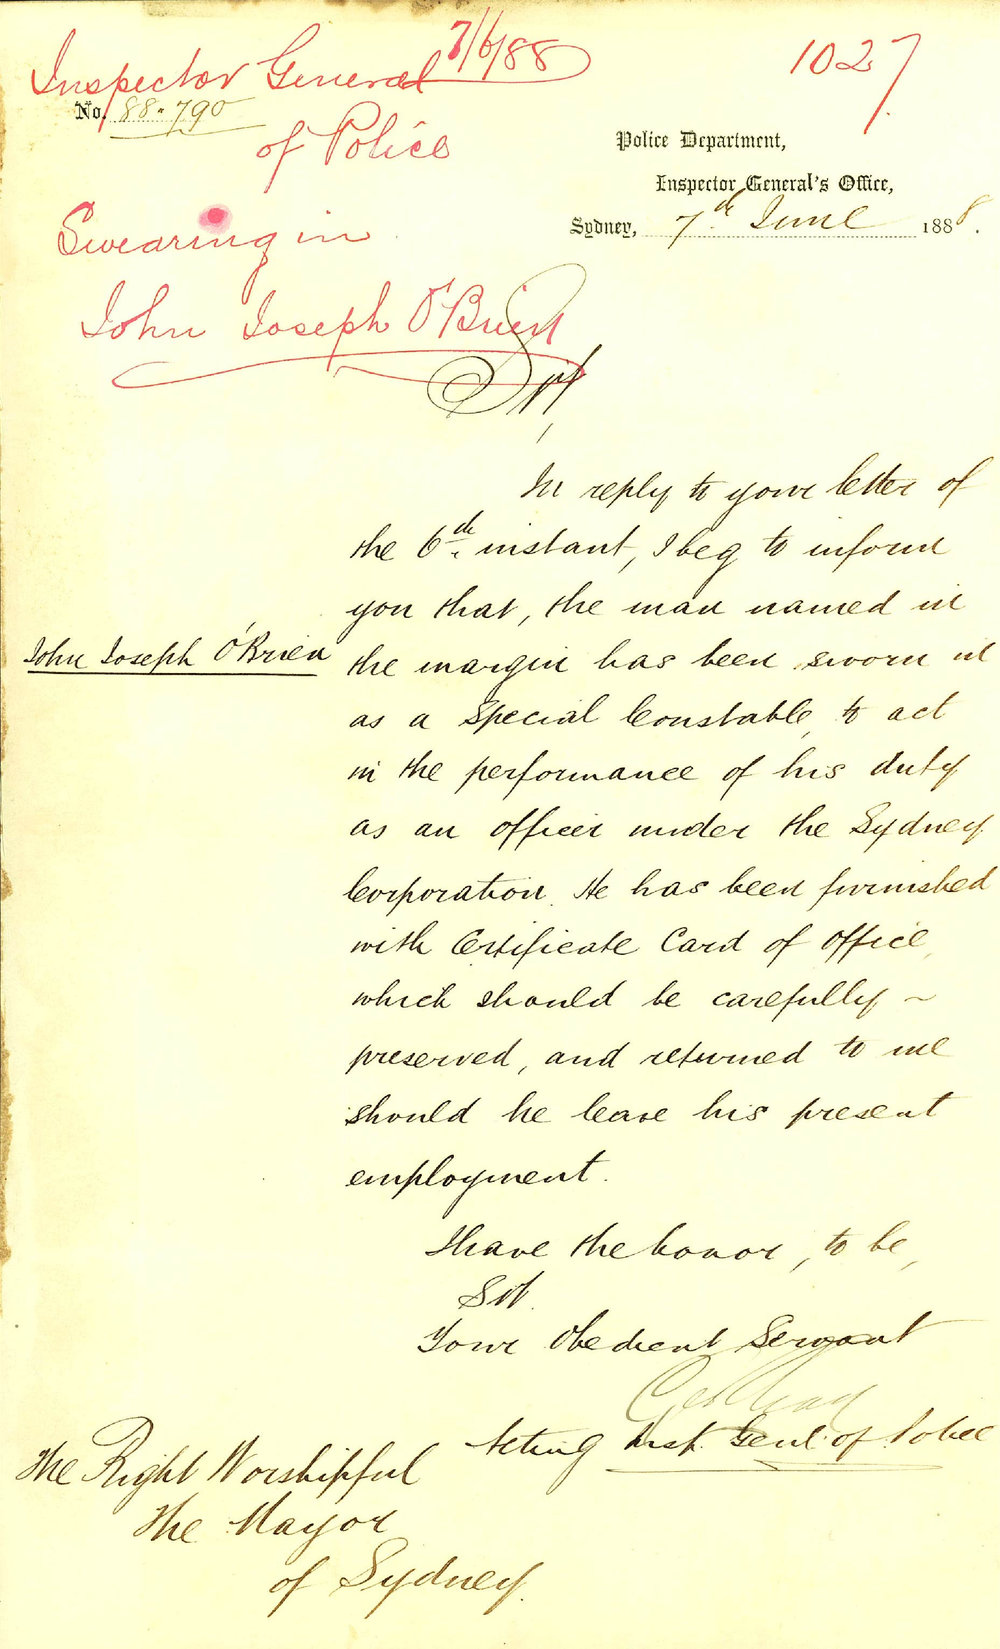 7/6/88
1027
Inspector General
No. 88-790
of Police
Police Department,
Inspector General's Office,
Sydney, 7th June 1888.
Swearing in
John Joseph O'Brien
Sir,
In reply to your letter of
the 6th instant, I beg to inform
you that, the man named in
John Joseph O'Brien
the margin has been sworn in
as a Special Constable, to act
in the performance of his duty
as an officer under the Sydney
Corporation. He has been furnished
with Certificate Card of office,
which should be carefully ~
preserved, and returned to me
should he leave his present
employment.
I have the honor, to be,
Sir.
Your Obedient Servant
Acting Insp. Genl. of Police
The Right Worshipful
The Mayor
of Sydney.